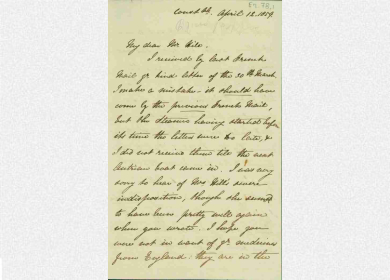 Const'ple April 12. 1859.
My dear Mr Hill.
I received by last French
Mail yr kind letter of the 30th March.
I make a mistake - it should have
come by the previous French Mail,
but the Steamer having started before
its time the letters were too late, &
I did not receive them till the next
Austrian boat came in. I was very
sorry to hear of Mrs Hill's severe
indisposition, though she seemed
to have been pretty well again
when you wrote. I hope you
were not in want of yr medicines
from England: they are in the